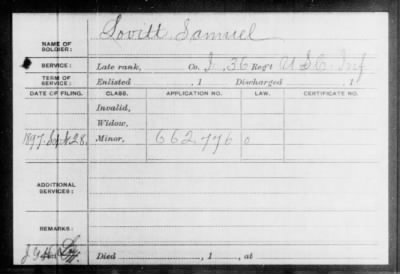 Lovitt, Samuel
NAME OF SOLDIER:
SERVICE: Late rank, Co. I, 36 Reg't U.S.C. Inf
TERM OF SERVICE: Enlisted , 1 Discharged , 1
DATE OF FILING. CLASS. APPLICATION NO. LAW. CERTIFICATE NO.
Invalid,
Widow,
1897. Sept. 28. Minor, 662776 0
ADDITIONAL SERVICES:
REMARKS:
Died , 1 , at